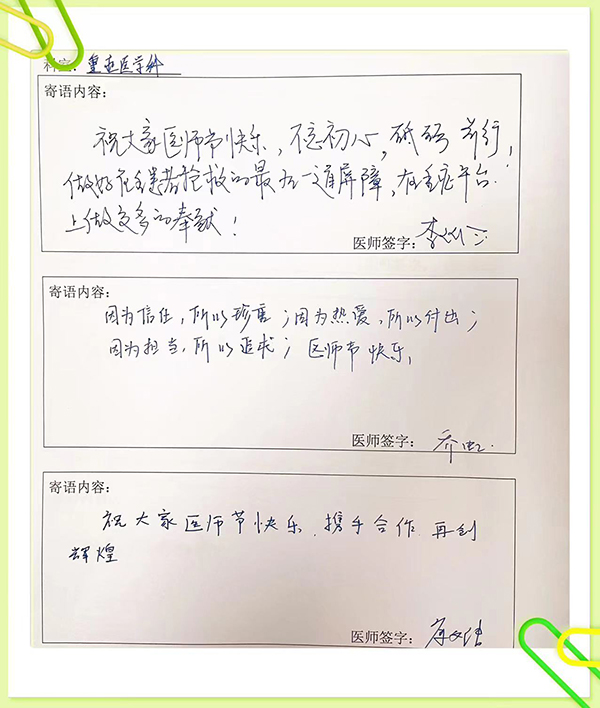 科室：重症医学科
寄语内容：
祝大家医师节快乐，不忘初心，砥砺前行，
做好危重患者抢救的最后一道屏障，在重症平台
上做更多的奉献！
医师签字：李
寄语内容：
因为信任，所以珍重；因为热爱，所以付出；
因为担当，所以追求；医师节快乐，
医师签字：乔虹
寄语内容：
祝大家医师节快乐，携手合作，再创
辉煌
医师签字：